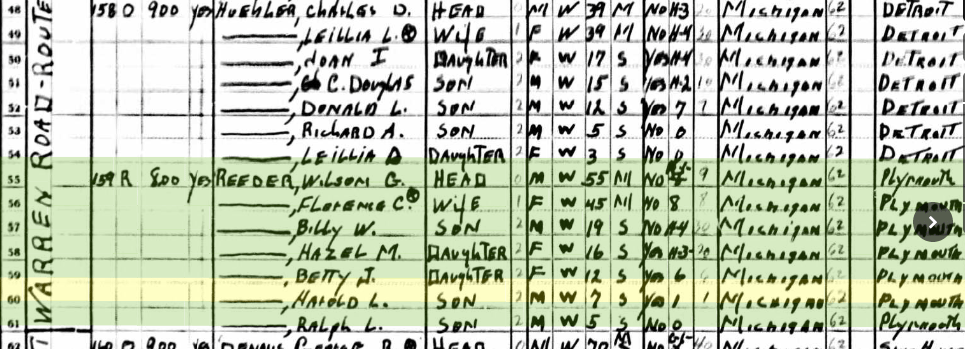 WARREN ROAD-ROUTE
48 158 O 900 yes HUEHLER, CHARLES D. HEAD 0 M W 39 M No H3 Michigan 62 DETROIT
49 ———, LEILLIA L. Wife 1 F W 39 M No H-4 30 Michigan 62 DETROIT
50 ———, JOAN I DAUGHTER 2 F W 17 S Yes H4 Michigan 62 DETROIT
51 ———, C. DOUGLAS SON 2 M W 15 S Yes H-2 Michigan 62 DETROIT
52 ———, DONALD L. SON 2 M W 12 S Yes 7 7 Michigan 62 DETROIT
53 ———, RICHARD A. SON 2 M W 5 S No 0 Michigan 62 DETROIT
54 ———, LEILLIA D DAUGHTER 2 F W 3 S No 0 Michigan 62 DETROIT
55 159 R 800 yes REEDER, WILSOM G. HEAD 0 M W 55 M No 9 Michigan 62 Plymouth
56 ———, FLORENCE C. Wife 1 F W 45 M No 8 8 Michigan 62 PLYMOUTH
57 ———, Billy W. SON 2 M W 19 S No H4 Michigan 62 PLYMOUTH
58 ———, HAZEL M. DAUGHTER 2 F W 16 S Yes H3 Michigan 62 PLYMOUTH
59 ———, BETTY J. DAUGHTER 2 F W 12 S Yes 6 6 Michigan 62 PLYMOUTH
60 ———, HAROLD L. SON 2 M W 7 S Yes 1 1 Michigan 62 PLYMOUTH
61 ———, RALPH L. SON 2 M W 5 S No 0 Michigan 62 Plymouth
HEAD